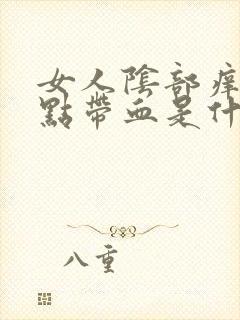 女人陰部痒
點帶血是什
八重